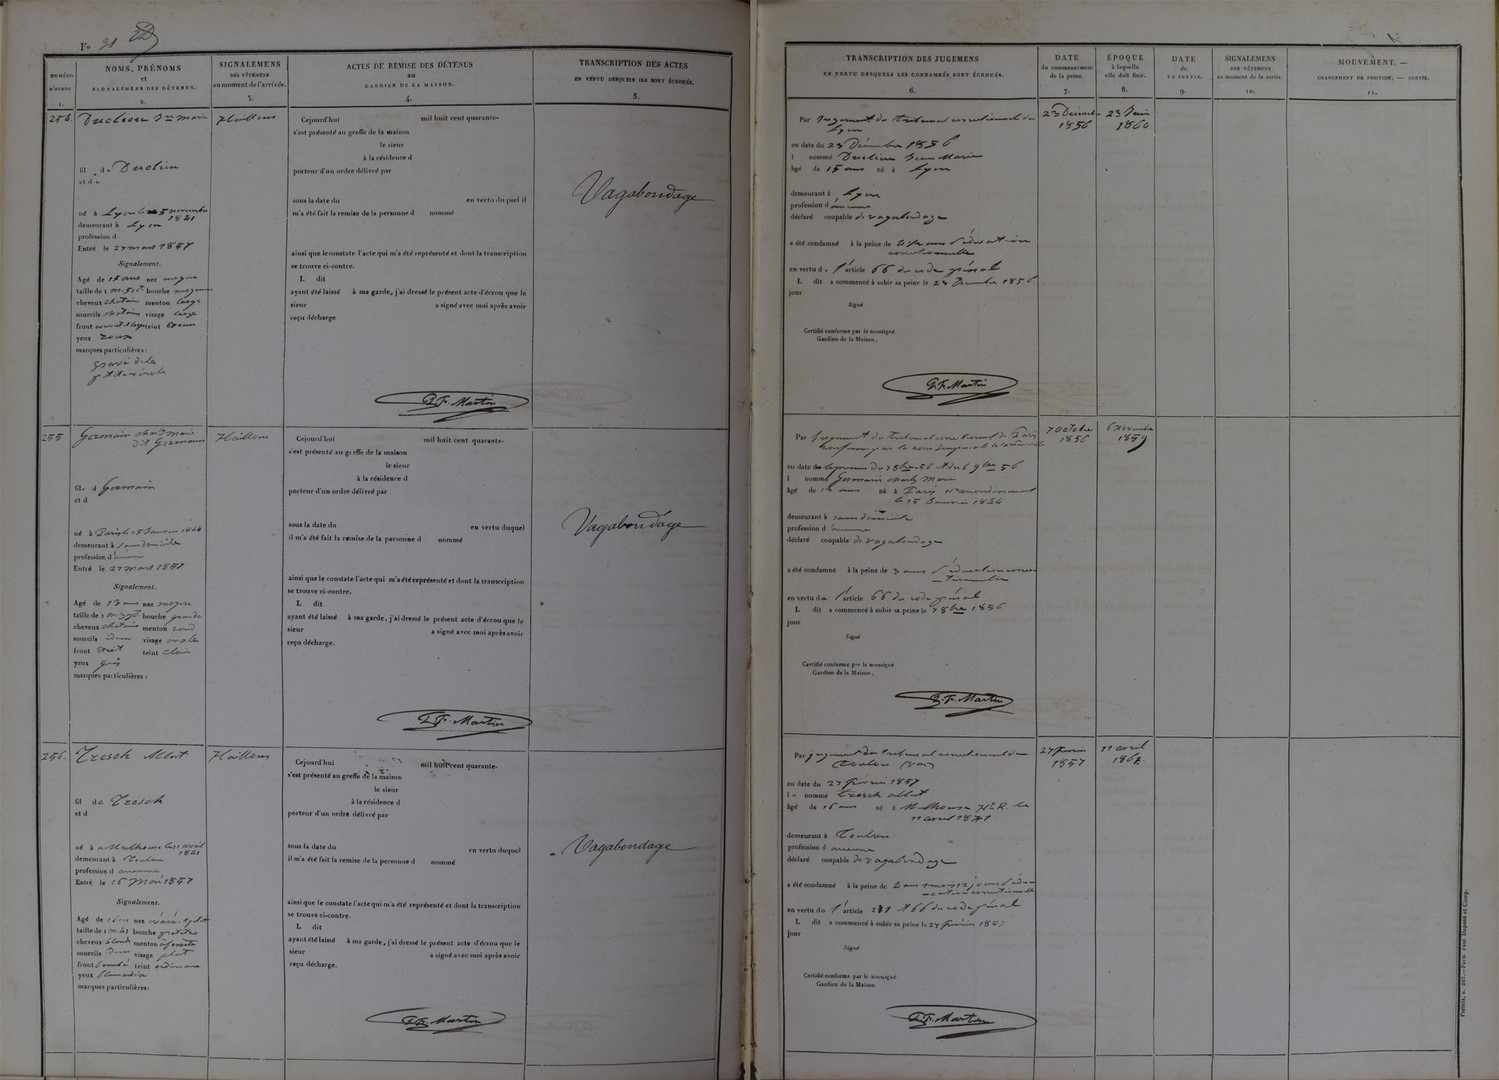 Fo 31
NUMÉRO D'ORDRE 1.
NOMS, PRÉNOMS
et
SIGNALEMENS DES DÉTENUS.
2.
SIGNALEMENS
DES VÊTEMENS
au moment de l'arrivée.
3.
ACTES DE REMISE DES DÉTENUS
AU
GARDIEN DE LA MAISON.
4.
TRANSCRIPTION DES ACTES
EN VERTU DESQUELS ILS SONT ÉCROUÉS.
5.
TRANSCRIPTION DES JUGEMENS
EN VERTU DESQUELS LES CONDAMNÉS SONT ÉCROUÉS.
6.
DATE
du commencement
de la peine.
7.
ÉPOQUE
à laquelle
elle doit finir.
8.
DATE
de
LA SORTIE.
9.
SIGNALEMENS
DES VÊTEMENS
au moment de la sortie.
10.
MOUVEMENT. —
CHANGEMENT DE POSITION. — SORTIE.
11.
254
Duclieu Jn marie
fil de Duclieu
et d
né à Lyon le 5 novembre
1841
demeurant à Lyon
profession d
Entré le 27 mars 1857
Signalement.
Agé de 15 ans nez moyen
taille de 1 m. bouche moyenne
cheveux chatain menton large
sourcils chatains visage large
front teint brun
yeux roux
marques particulières :
gravé de la
petite vérole
Haillons
Cejourd'hui mil huit cent quarante-
s'est présenté au greffe de la maison
le sieur
à la résidence d
porteur d'un ordre délivré par
sous la date du en vertu duquel il
m'a été fait la remise de la personne d nommé
ainsi que le constate l'acte qui m'a été représenté et dont la transcription
se trouve ci-contre.
L dit
ayant été laissé à ma garde, j'ai dressé le présent acte d'écrou que le
sieur a signé avec moi après avoir
reçu décharge
Martin
Vagabondage
Par jugement du tribunal correctionnel de
Lyon
en date du 23 Décembre 1856
l nommé Duclieu Jean Marie
âgé de 15 ans né à Lyon
demeurant à Lyon
profession d
déclaré coupable de vagabondage
a été condamné à la peine de ans d'éducation
correctionnelle
en vertu de l'article 66 du code pénal
L dit a commencé à subir sa peine le 23 Décembre 1856
jour
Signé
Certifié conforme par le soussigné
Gardien de la Maison,
Martin
23 Décembre
1856
23 Juin
1860
255
Germain
dit Germain
fil. d Germain
et d
né à Paris le 15 Janvier 1844
demeurant à sans domicile
profession d aucune
Entré le 27 mars 1857
Signalement.
Agé de 13 ans nez moyen
taille de 1 m. bouche grande
cheveux chatains menton rond
sourcils visage ovale
front étroit teint clair
yeux gris
marques particulières :
Haillons
Cejourd'hui mil huit cent quarante-
s'est présenté au greffe de la maison
le sieur
à la résidence d
porteur d'un ordre délivré par
sous la date du en vertu duquel
il m'a été fait la remise de la personne d nommé
ainsi que le constate l'acte qui m'a été représenté et dont la transcription
se trouve ci-contre.
L dit
ayant été laissé à ma garde, j'ai dressé le présent acte d'écrou que le
sieur a signé avec moi après avoir
reçu décharge.
Martin
Vagabondage
Par jugement du tribunal correctionnel de Paris
en date
l nommé Germain Marie
âgé de ans né à Paris arrondissement
le 15 Janvier 1844
demeurant à sans domicile
profession d aucune
déclaré coupable de vagabondage
a été condamné à la peine de 3 ans d'éducation correc-
tionnelle
en vertu de l'article 66 du code pénal
L dit a commencé à subir sa peine le 7 8bre 1856
jour
Signé
Certifié conforme par le soussigné
Gardien de la Maison,
Martin
7 Octobre
1856
6 Novembre
1859
256.
Tresch Albert
fil de Tresch
et d
né à Mulhouse le 11 avril
1841
demeurant à Toulon
profession d aucune
Entré le 16 Mai 1857
Signalement.
Agé de nez
taille de 1 m. bouche petite
cheveux blonds menton
sourcils visage plat
front bombé teint ordinaire
yeux
marques particulières :
Haillons
Cejourd'hui mil huit cent quarante-
s'est présenté au greffe de la maison
le sieur
à la résidence d
porteur d'un ordre délivré par
sous la date du en vertu duquel
il m'a été fait la remise de la personne d nommé
ainsi que le constate l'acte qui m'a été représenté et dont la transcription
se trouve ci-contre.
L dit
ayant été laissé à ma garde, j'ai dressé le présent acte d'écrou que le
sieur a signé avec moi après avoir
reçu décharge.
Martin
Vagabondage
Par jugement du tribunal correctionnel de
Toulon (Var)
en date du 27 février 1857
l nommé Tresch Albert
âgé de 16 ans né à Mulhouse Ht R. le
11 avril
demeurant à Toulon
profession d aucune
déclaré coupable de vagabondage
a été condamné à la peine de ans mois 12 jours d'édu-
cation correctionnelle
en vertu de l'article 271 et 66 du code pénal
L dit a commencé à subir sa peine le 27 février 1857
jour
Signé
Certifié conforme par le soussigné
Gardien de la Maison
Martin
27 février
1857
11 avril
Paris, Paul Dupont et Comp.